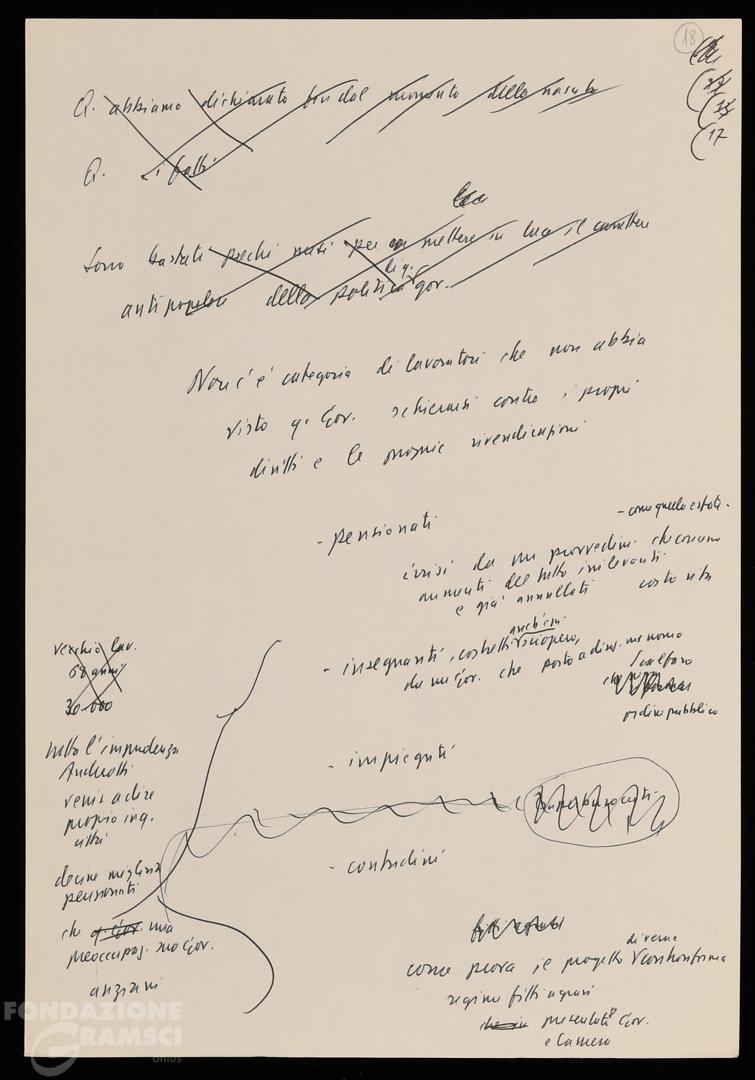 18
17
Q. abbiamo dichiarato fin dal momento della nascita
Q. i fatti
Sono bastati pochi mesi per mettere in luce il carattere
antipopolare della politica gov.
Non c'è categoria di lavoratori che non abbia
visto q. Gov. schierarsi contro i propri
diritti e le proprie rivendicazioni
- pensionati
- come quello estate -
irrisi da un provvedim. che
aumenti del tutto irrilevanti
e già annullati costo vita
- insegnanti, costretti anch'essi sciopero,
da un Gov. che posto a dirig. 
Scalfaro
ordine pubblico
- impiegati
- contadini
come prova il progetto di controriforma
regime fitti agrari
presentato Gov.
e Camera
vecchio lav.
68 anni
30.000
tutta l'impudenza
Andreotti
venir a dire
proprio in q.
città
decine migliaia
pensionati
che q. Gov. mia
preoccupaz. mio Gov.
anziani
FONDAZIONE
GRAMSCI
onlus